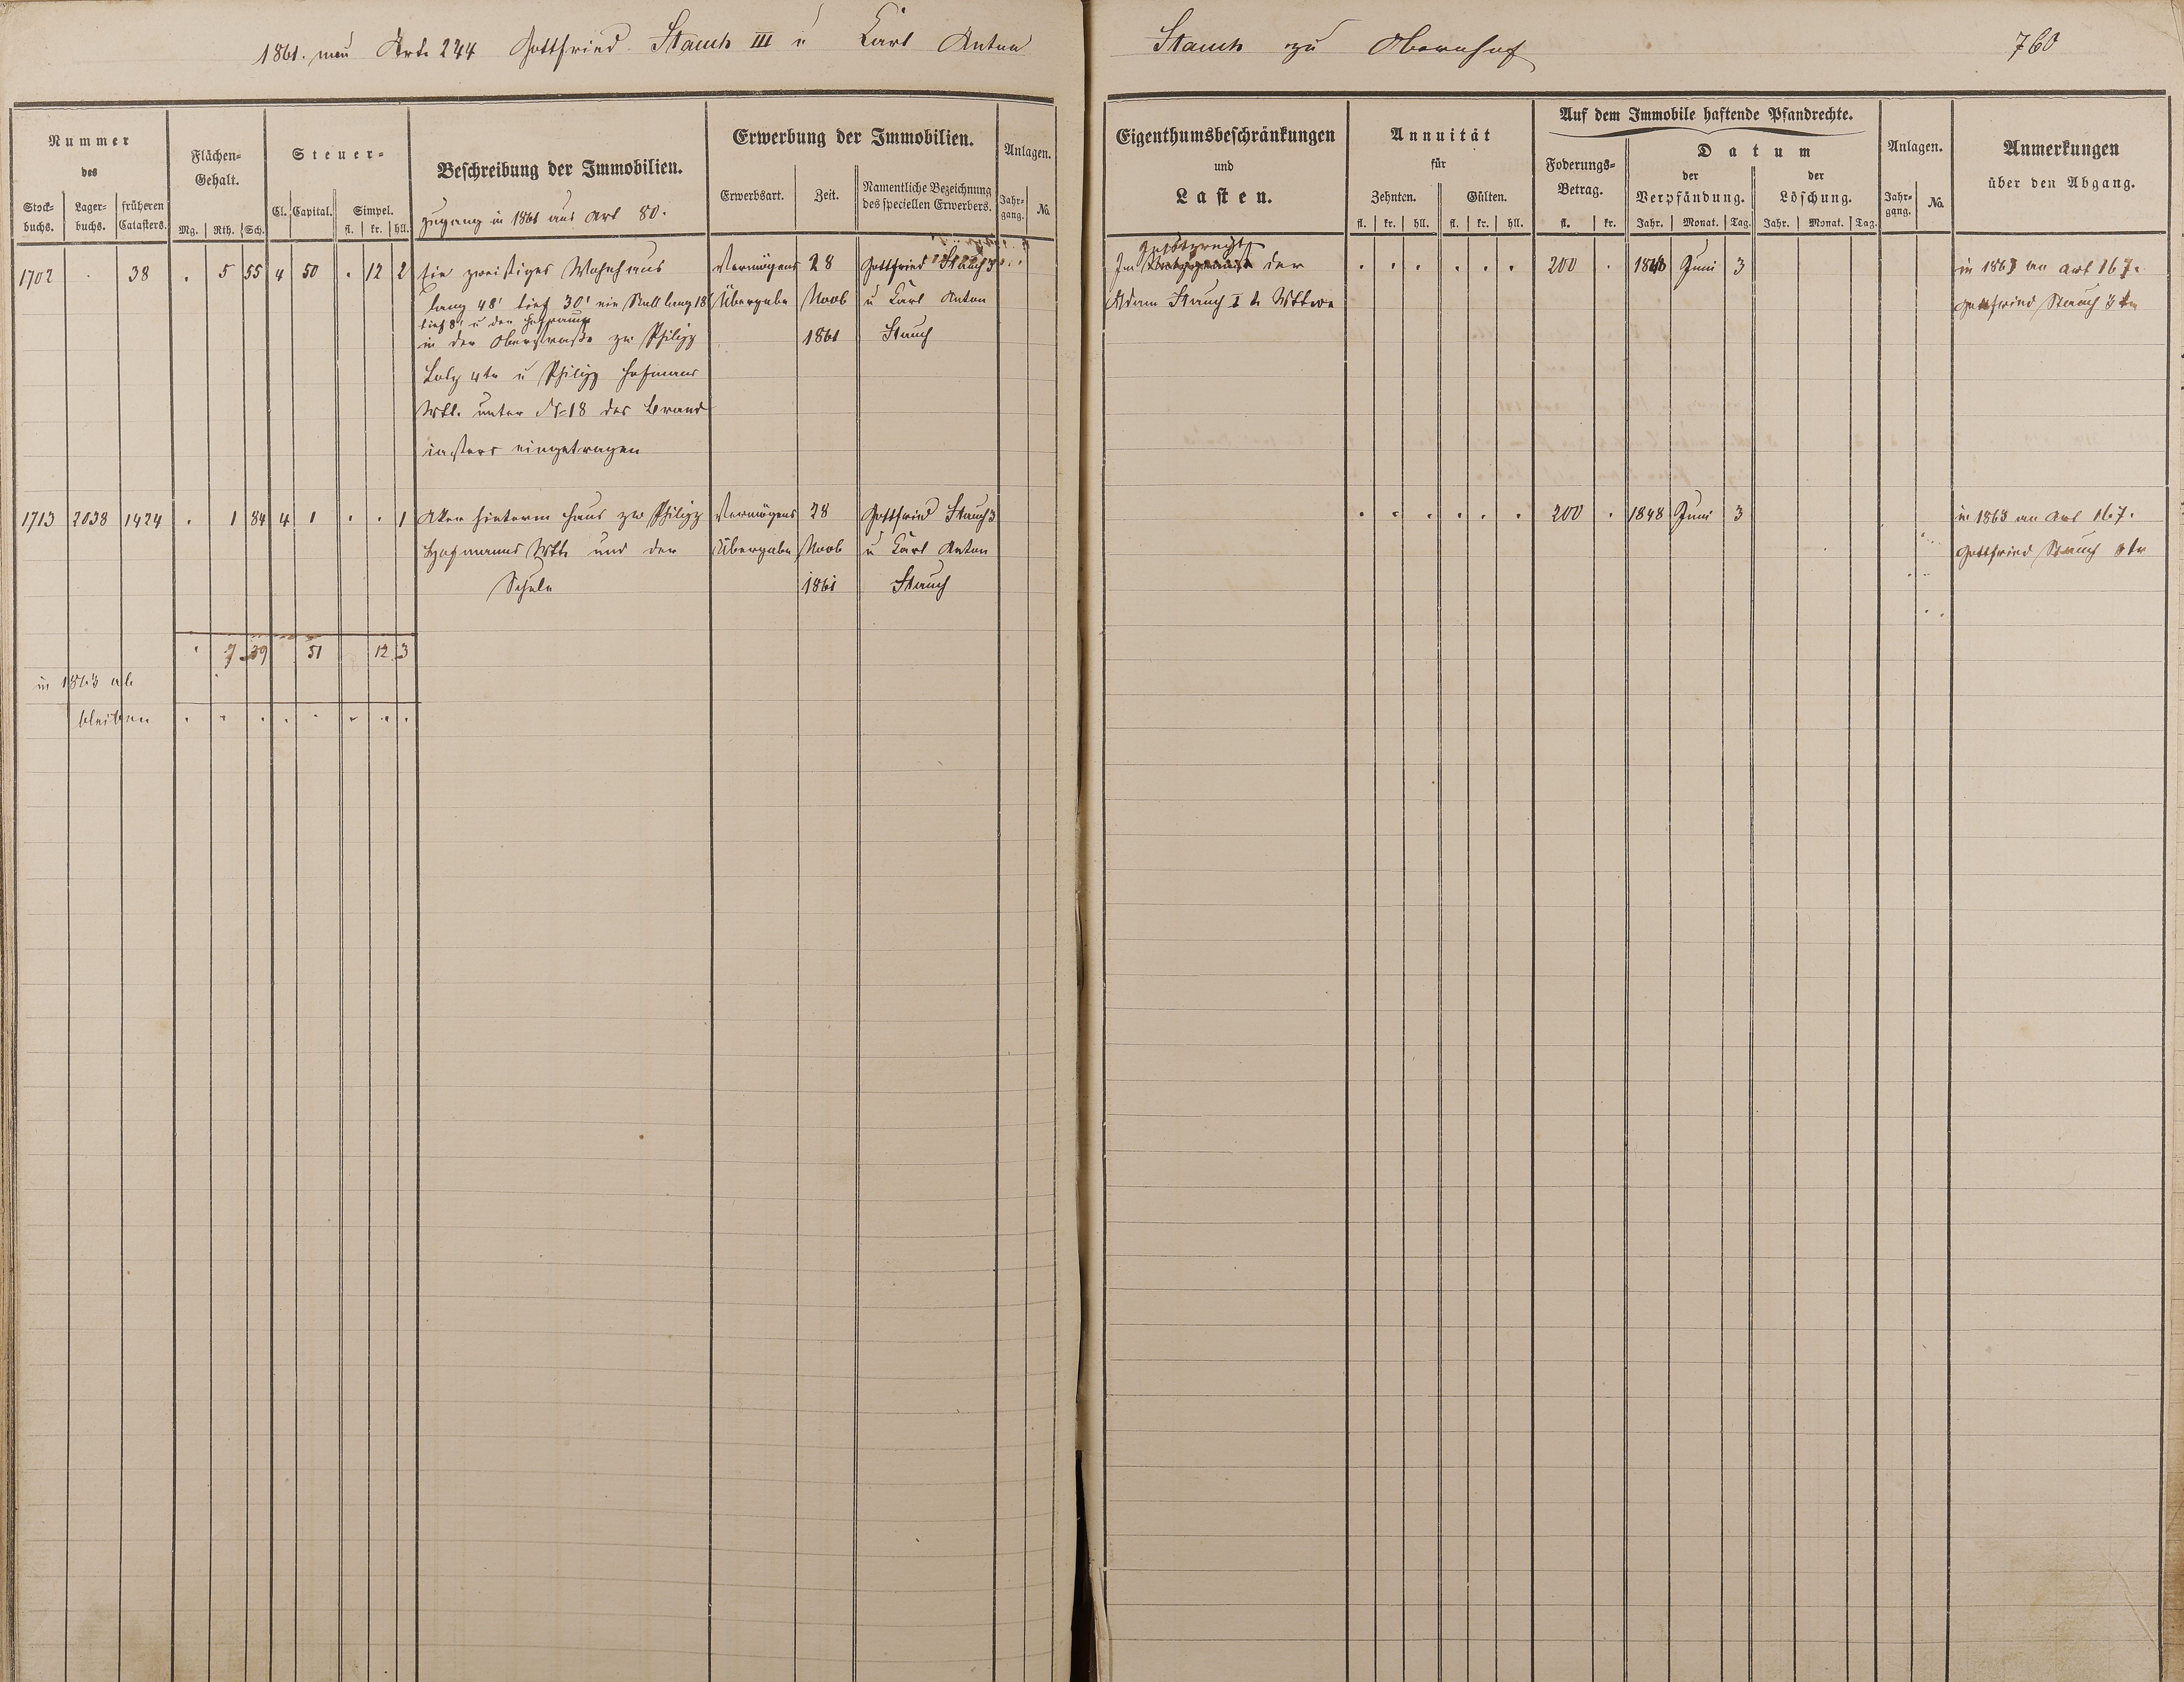 1861. neu Art. 244 Gottfried Stauch III u Karl Anton Stauch zu Obernhof 760
Nummer
des
Stock-
buchs.
Lager-
buchs.
früheren
Catasters.
Flächen-
Gehalt.
Mg. Rth. Sch.
Steuer-
Cl. Capital. Simpel.
fl. kr. hll.
Beschreibung der Immobilien.
Zugang in 1861 aus Art 80.
Erwerbung der Immobilien.
Erwerbsart. Zeit.
Namentliche Bezeichnung
des speciellen Erwerbers.
Anlagen.
Jahr-
gang.
No.
Eigenthumsbeschränkungen
und
Lasten.
Annuität
für
Zehnten. Gülten.
fl. kr. hll. fl. kr. hll.
Auf dem Immobile haftende Pfandrechte.
Foderungs-
Betrag.
fl. kr.
Datum
der
Verpfändung.
Jahr. Monat. Tag.
der
Löschung.
Jahr. Monat. Tag.
Anlagen.
Jahr-
gang.
No.
Anmerkungen
über den Abgang.
1702 . 38 . 5 55 4 50 . 12 2
Ein zweistiges Wohnhaus
lang 48' tief 30' ein Stall lang 18'
tief 8' u der Hofraum
in der Oberstraße zw Philipp
4tr u Philipp Hofmanns
Wtt. unter N=18 des Brand
casters eingetragen
Vermögens
Übergabe
28
Novb
1861
Gottfried Stauch 3
u Karl Anton
Stauch
Im der
Adam Stauch I tr Wittwe
. . . . . . 200 . 1848 Juni 3
in 1863 an Art 167.
Gottfried Stauch 3tr
1713 2038 1424 . 1 84 4 1 . . 1
Aker hinterm Haus zw Philipp
Hofmanns Wtt. und der
Schule
Vermögens
Übergabe
28
Novb
1861
Gottfried Stauch 3
u Karl Anton
Stauch
. . . . . . 200 . 1848 Juni 3
in 1863 an Art 167.
Gottfried Stauch 3tr
. 7 39 51 12 3
in 1863 ab
bleiben . . . . . . . .